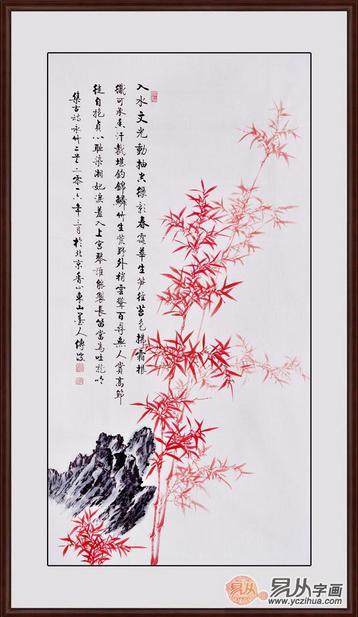 入水文光動抽空綠影春露華生笋徑苔色拂霜根
織可承香汗裁堪釣錦鱗竹生荒野外梢雲聳百尋無人賞高節
徒自抱貞心恥染湘妃淚羞入上宮琴誰能製長笛當為吐龍吟
集古詩詠竹二首二零一六年三月於北京香山東山墨人傅
易从字画
www.yczihua.com